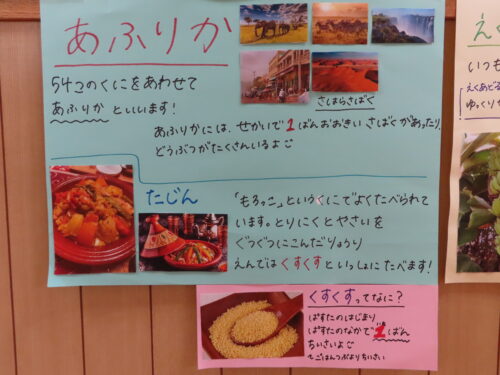 あふりか
54このくにをあわせて
あふりか といいます!
さはらさばく
あふりかには、せかいで1ばんおおきい さばくがあったり、
どうぶつがたくさんいるよ
たじん
「もろっこ」というくにでよくたべられて
います。とりにくとやさいを
ぐつぐつにこんだりょうり
えんではくすくすといっしょにたべます!
くすくすってなに?
ぱすたのはじまり
ぱすたのなかで1ばん
ちいさいよ
てごはんつぶよりちいさい
え
いつも
えくあどる
ゆっくり